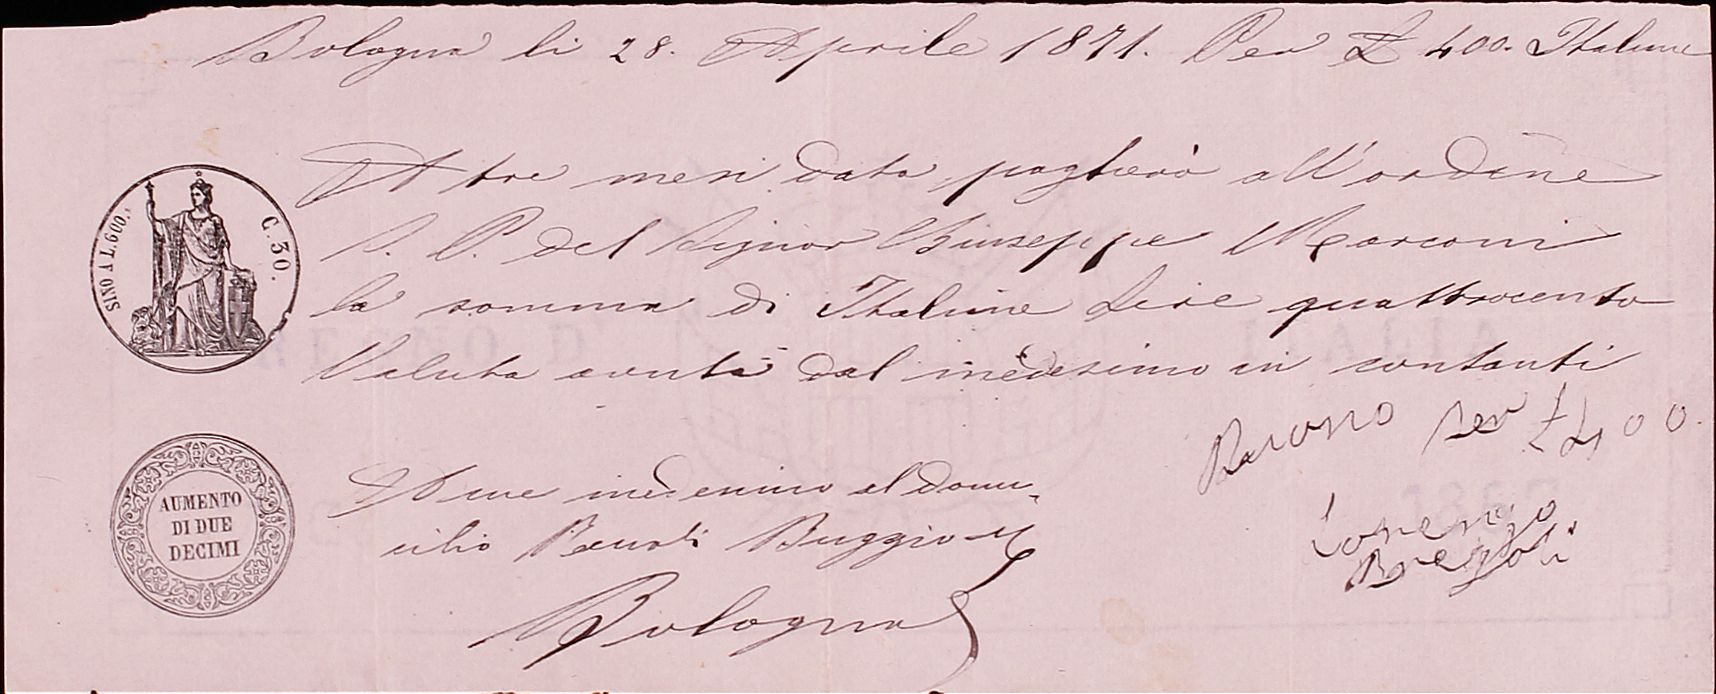 Bologna li 28. Aprile 1871. Per £ 400. Italiane
A tre mesi data pagherò all'ordine
S. P. del Signor Giuseppe Marconi
la somma di Italiane Lire quattrocento
Valuta avuta dal medesimo in contanti
per £ 400.
Lorenzo
A me medesimo al domi-
cilio
Bologna
SINO A L.600.
C.30.
AUMENTO
DI DUE
DECIMI
REGNO D'ITALIA